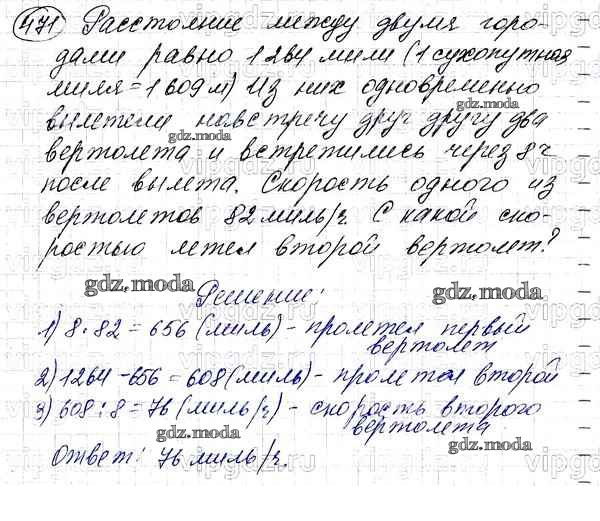 471 Расстояние между двумя горо-
дами равно 1264 мили (1 сухопутная
миля = 1609 м) Из них одновременно
вылетели навстречу друг другу два
gdz.moda gdz.moda
вертолета и встретились через 8 ч
после вылета. Скорость одного из
вертолетов 82 миль/ч. С какой ско-
ростью летел второй вертолет?
gdz.moda gdz.moda
Решение:
1) 8 · 82 = 656 (миль) - пролетел первый
вертолет
2) 1264 - 656 = 608 (миль) - пролетел второй
3) 608 : 8 = 76 (миль/ч) - скорость второго
вертолета
gdz.moda gdz.moda
Ответ: 76 миль/ч.